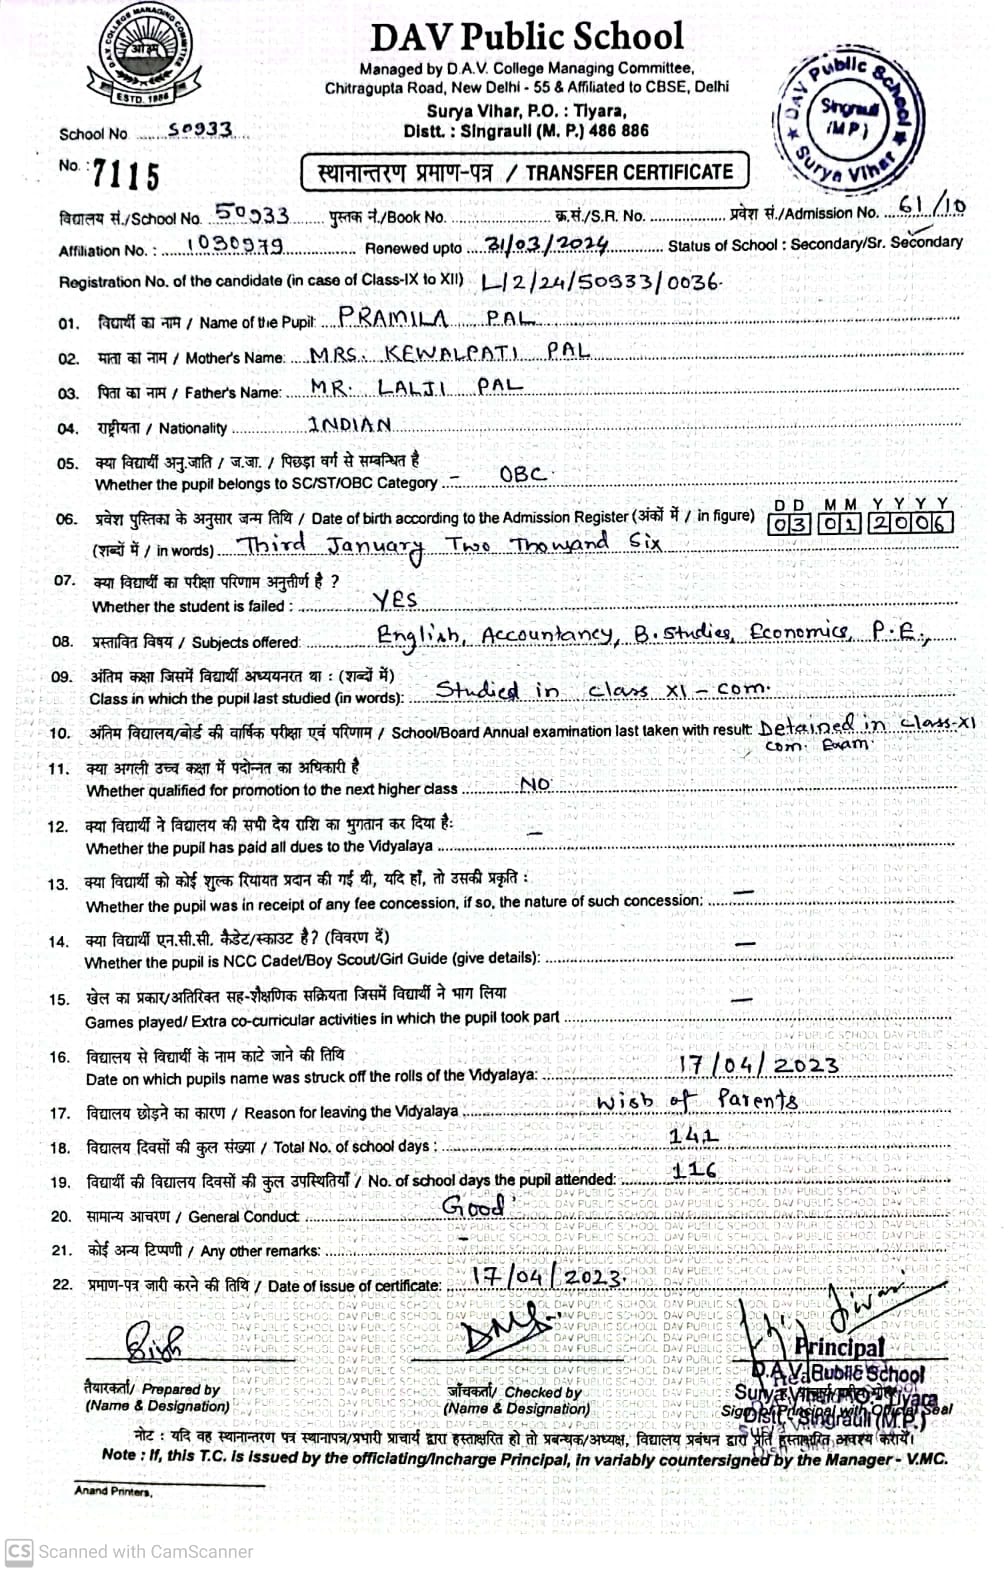 D.A.V. COLLEGE MANAGING COMMITTEE
ओ३म्
ESTD. 1886
DAV Public School
Managed by D.A.V. College Managing Committee,
Chitragupta Road, New Delhi - 55 & Affiliated to CBSE, Delhi
Surya Vihar, P.O. : Tiyara,
Distt. : Singrauli (M. P.) 486 886
DAV Public School
Singrauli
(M P)
Surya Vihar
School No 50933
No. : 7115
स्थानान्तरण प्रमाण-पत्र / TRANSFER CERTIFICATE
विद्यालय सं./School No. 50933 पुस्तक नं./Book No. क्र.सं./S.R. No. प्रवेश सं./Admission No. 61/10
Affiliation No. : 1030979 Renewed upto 31/03/2024 Status of School : Secondary/Sr. Secondary
Registration No. of the candidate (in case of Class-IX to XII) L/2/24/50933/0036.
01. विद्यार्थी का नाम / Name of the Pupil: PRAMILA PAL
02. माता का नाम / Mother's Name: MRS. KEWALPATI PAL
03. पिता का नाम / Father's Name: MR. LALJI PAL
04. राष्ट्रीयता / Nationality INDIAN
05. क्या विद्यार्थी अनु.जाति / ज.जा. / पिछड़ा वर्ग से सम्बन्धित है
Whether the pupil belongs to SC/ST/OBC Category - OBC
06. प्रवेश पुस्तिका के अनुसार जन्म तिथि / Date of birth according to the Admission Register (अंकों में / in figure) D D M M Y Y Y Y 03 01 2006
(शब्दों में / in words) Third January Two Thousand Six
07. क्या विद्यार्थी का परीक्षा परिणाम अनुत्तीर्ण है ?
Whether the student is failed : YES
08. प्रस्तावित विषय / Subjects offered: English, Accountancy, B. Studies, Economics, P.E.,
09. अंतिम कक्षा जिसमें विद्यार्थी अध्ययनरत था : (शब्दों में)
Class in which the pupil last studied (in words): Studied in class XI - com.
10. अंतिम विद्यालय/बोर्ड की वार्षिक परीक्षा एवं परिणाम / School/Board Annual examination last taken with result: Detained in class-XI
com. Exam.
11. क्या अगली उच्च कक्षा में पदोन्नत का अधिकारी है
Whether qualified for promotion to the next higher class NO
12. क्या विद्यार्थी ने विद्यालय की सभी देय राशि का भुगतान कर दिया है:
Whether the pupil has paid all dues to the Vidyalaya –
13. क्या विद्यार्थी को कोई शुल्क रियायत प्रदान की गई थी, यदि हाँ, तो उसकी प्रकृति :
Whether the pupil was in receipt of any fee concession, if so, the nature of such concession: –
14. क्या विद्यार्थी एन.सी.सी. कैडेट/स्काउट है? (विवरण दें)
Whether the pupil is NCC Cadet/Boy Scout/Girl Guide (give details): –
15. खेल का प्रकार/अतिरिक्त सह-शैक्षणिक सक्रियता जिसमें विद्यार्थी ने भाग लिया
Games played/ Extra co-curricular activities in which the pupil took part –
16. विद्यालय से विद्यार्थी के नाम काटे जाने की तिथि
Date on which pupils name was struck off the rolls of the Vidyalaya: 17/04/2023
17. विद्यालय छोड़ने का कारण / Reason for leaving the Vidyalaya Wish of Parents
18. विद्यालय दिवसों की कुल संख्या / Total No. of school days : 141
19. विद्यार्थी की विद्यालय दिवसों की कुल उपस्थितियाँ / No. of school days the pupil attended: 116
20. सामान्य आचरण / General Conduct Good
21. कोई अन्य टिप्पणी / Any other remarks: –
22. प्रमाण-पत्र जारी करने की तिथि / Date of issue of certificate: 17/04/2023.
Principal
D.A.V. Public School
Distt.- Singrauli (M.P.)
तैयारकर्ता/ Prepared by
(Name & Designation)
जाँचकर्ता/ Checked by
(Name & Designation)
Sign of Principal with Official Seal
नोट : यदि वह स्थानान्तरण पत्र स्थानापन्न/प्रभारी प्राचार्य द्वारा हस्ताक्षरित हो तो प्रबन्धक/अध्यक्ष, विद्यालय प्रबंधन द्वारा प्रति हस्ताक्षरित अवश्य करायें।
Note : If, this T.C. is issued by the officiating/Incharge Principal, in variably countersigned by the Manager - V.MC.
Anand Printers,
CS Scanned with CamScanner